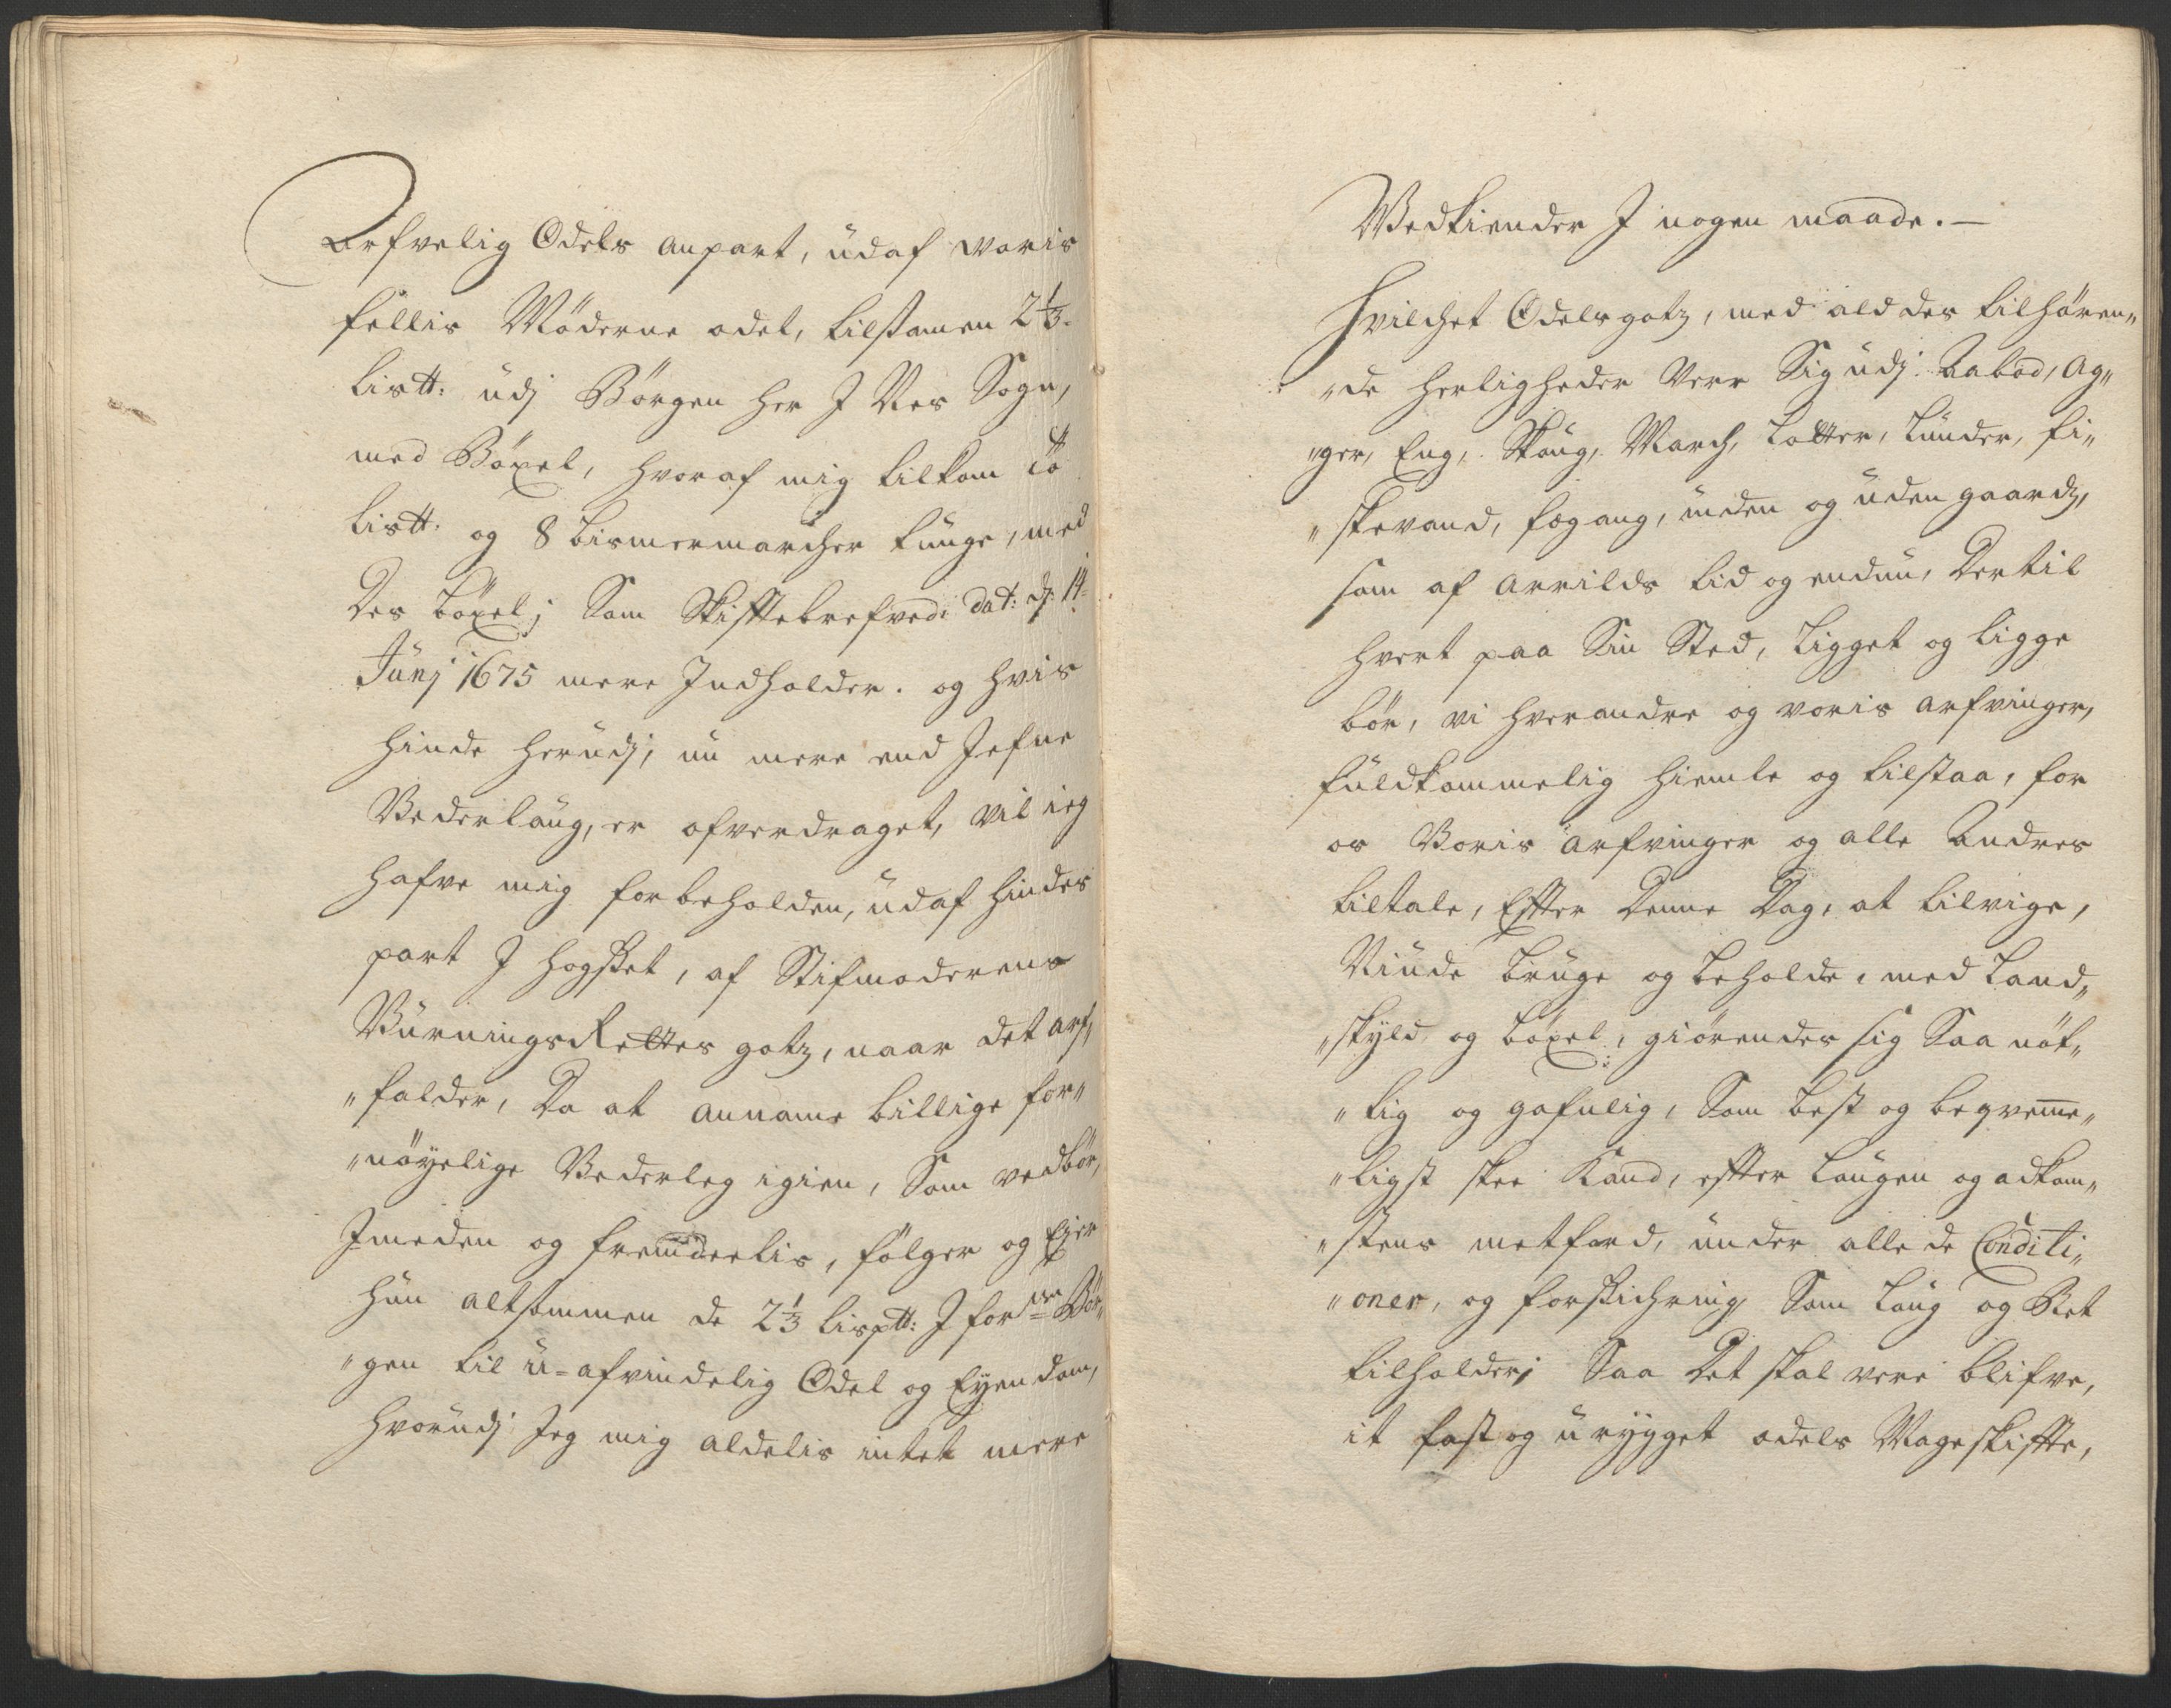 Arfvelig Odels anpart, udaf voris
fellis Möderne odel, tilsamen 2 1/3
Listt: udj Börgen her J Nes Sogn,
med Böxel, hvoraf mig tilkom to
Listt. og 8 bismermarcher tunge, med
Des böxel; Som Skifftebrefvedi dat: d: 14
Junj 1675 mere Jndholder. og hvis
hinde herudj, nu mere end Jefne
Vederlaug, er ofverdraget, vil ieg
hafve mig forbeholden, udaf hindes
part J hogset, af Stifmoderens
VurningsRettes gotz, naar det arf„
„falder, Da at anname billige for„
„nöyelige Vederleg igien, Som vedbör,
Jmeden og fremdeelis, fölger og Ejer
hun altsammen de 2 1/3 Lisptt: J forne Bör„
„gen til u=afvindelig Odel og Eyendom,
hvorudj Jeg mig aldelis intet mere
Vedkiender J nogen maade.—
Hvilchet Odelsgotz, med ald des tilhören„
„de herligheder Vere Sig udj Aabod, Ag„
„ger, Eng, Skoug, March, Lotter, Lunder, fi„
„skevand, fægang, inden og uden gaardz,
som af Arrilds tid og endnu, Dertil
hvert paa Sin Sted, Ligget og Ligge
bör, vi hverandre og voris arfvinger,
fuldkommelig hiemle og tilstaa, for
os Voris Arfvinger og alle Andres
tiltale, Effter Denne Dag, at tilvige,
Niude bruge og beholde, med Land„
„skyld og böxel, giörendes sig Saa nöt„
„tig og gafnlig, Som best og beqveme„
„ligst skee Kand, effter Laugen og adkom„
„stens metferd, under alle de Conditi„
„oner, og forsichring Som Laug og Ret
tilholder; Saa Det skal vere blifve,
it fast og urygget odels Mageskiffte,